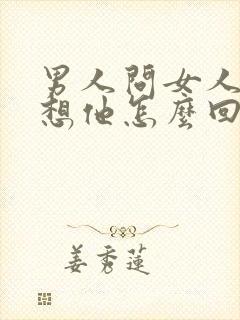 男人問女人
想他怎麼回
姜秀蓮